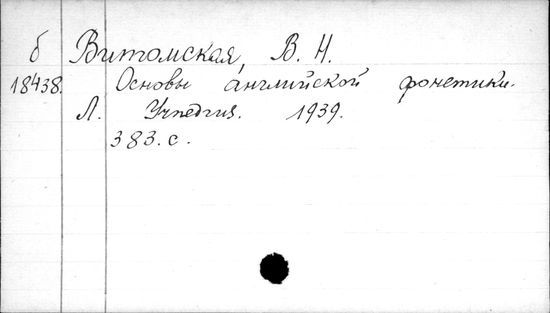 б Витомская, В. Н.
18438. Основы английской фонетики.
Л. Учпедгиз. 1939.
383. с.